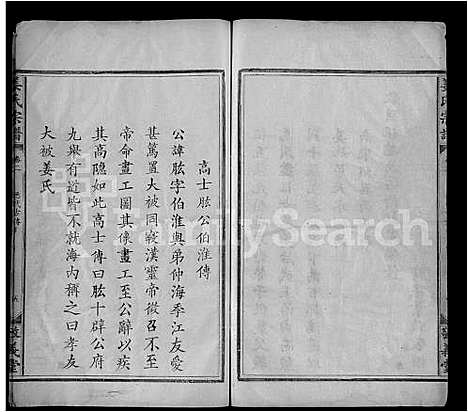 姜氏宗譜
高士肱公伯淮傳
公諱肱字伯淮與弟仲海季江友愛
甚篤置大被同寢漢靈帝徵召不至
帝命畫工圖其像畫工至公辭以疾
其高隱如此高士傳曰肱十辟公府
九舉有道皆不就海內稱之曰孝友
大被姜氏
姜氏宗譜
卷一
敬義堂
FamilySearch